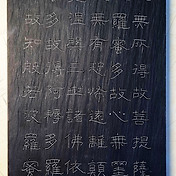 無所得故菩提薩
羅蜜多故心無罣
無有恐怖遠離顛
槃三世諸佛依
多故得阿耨多羅
故知般若波羅蜜